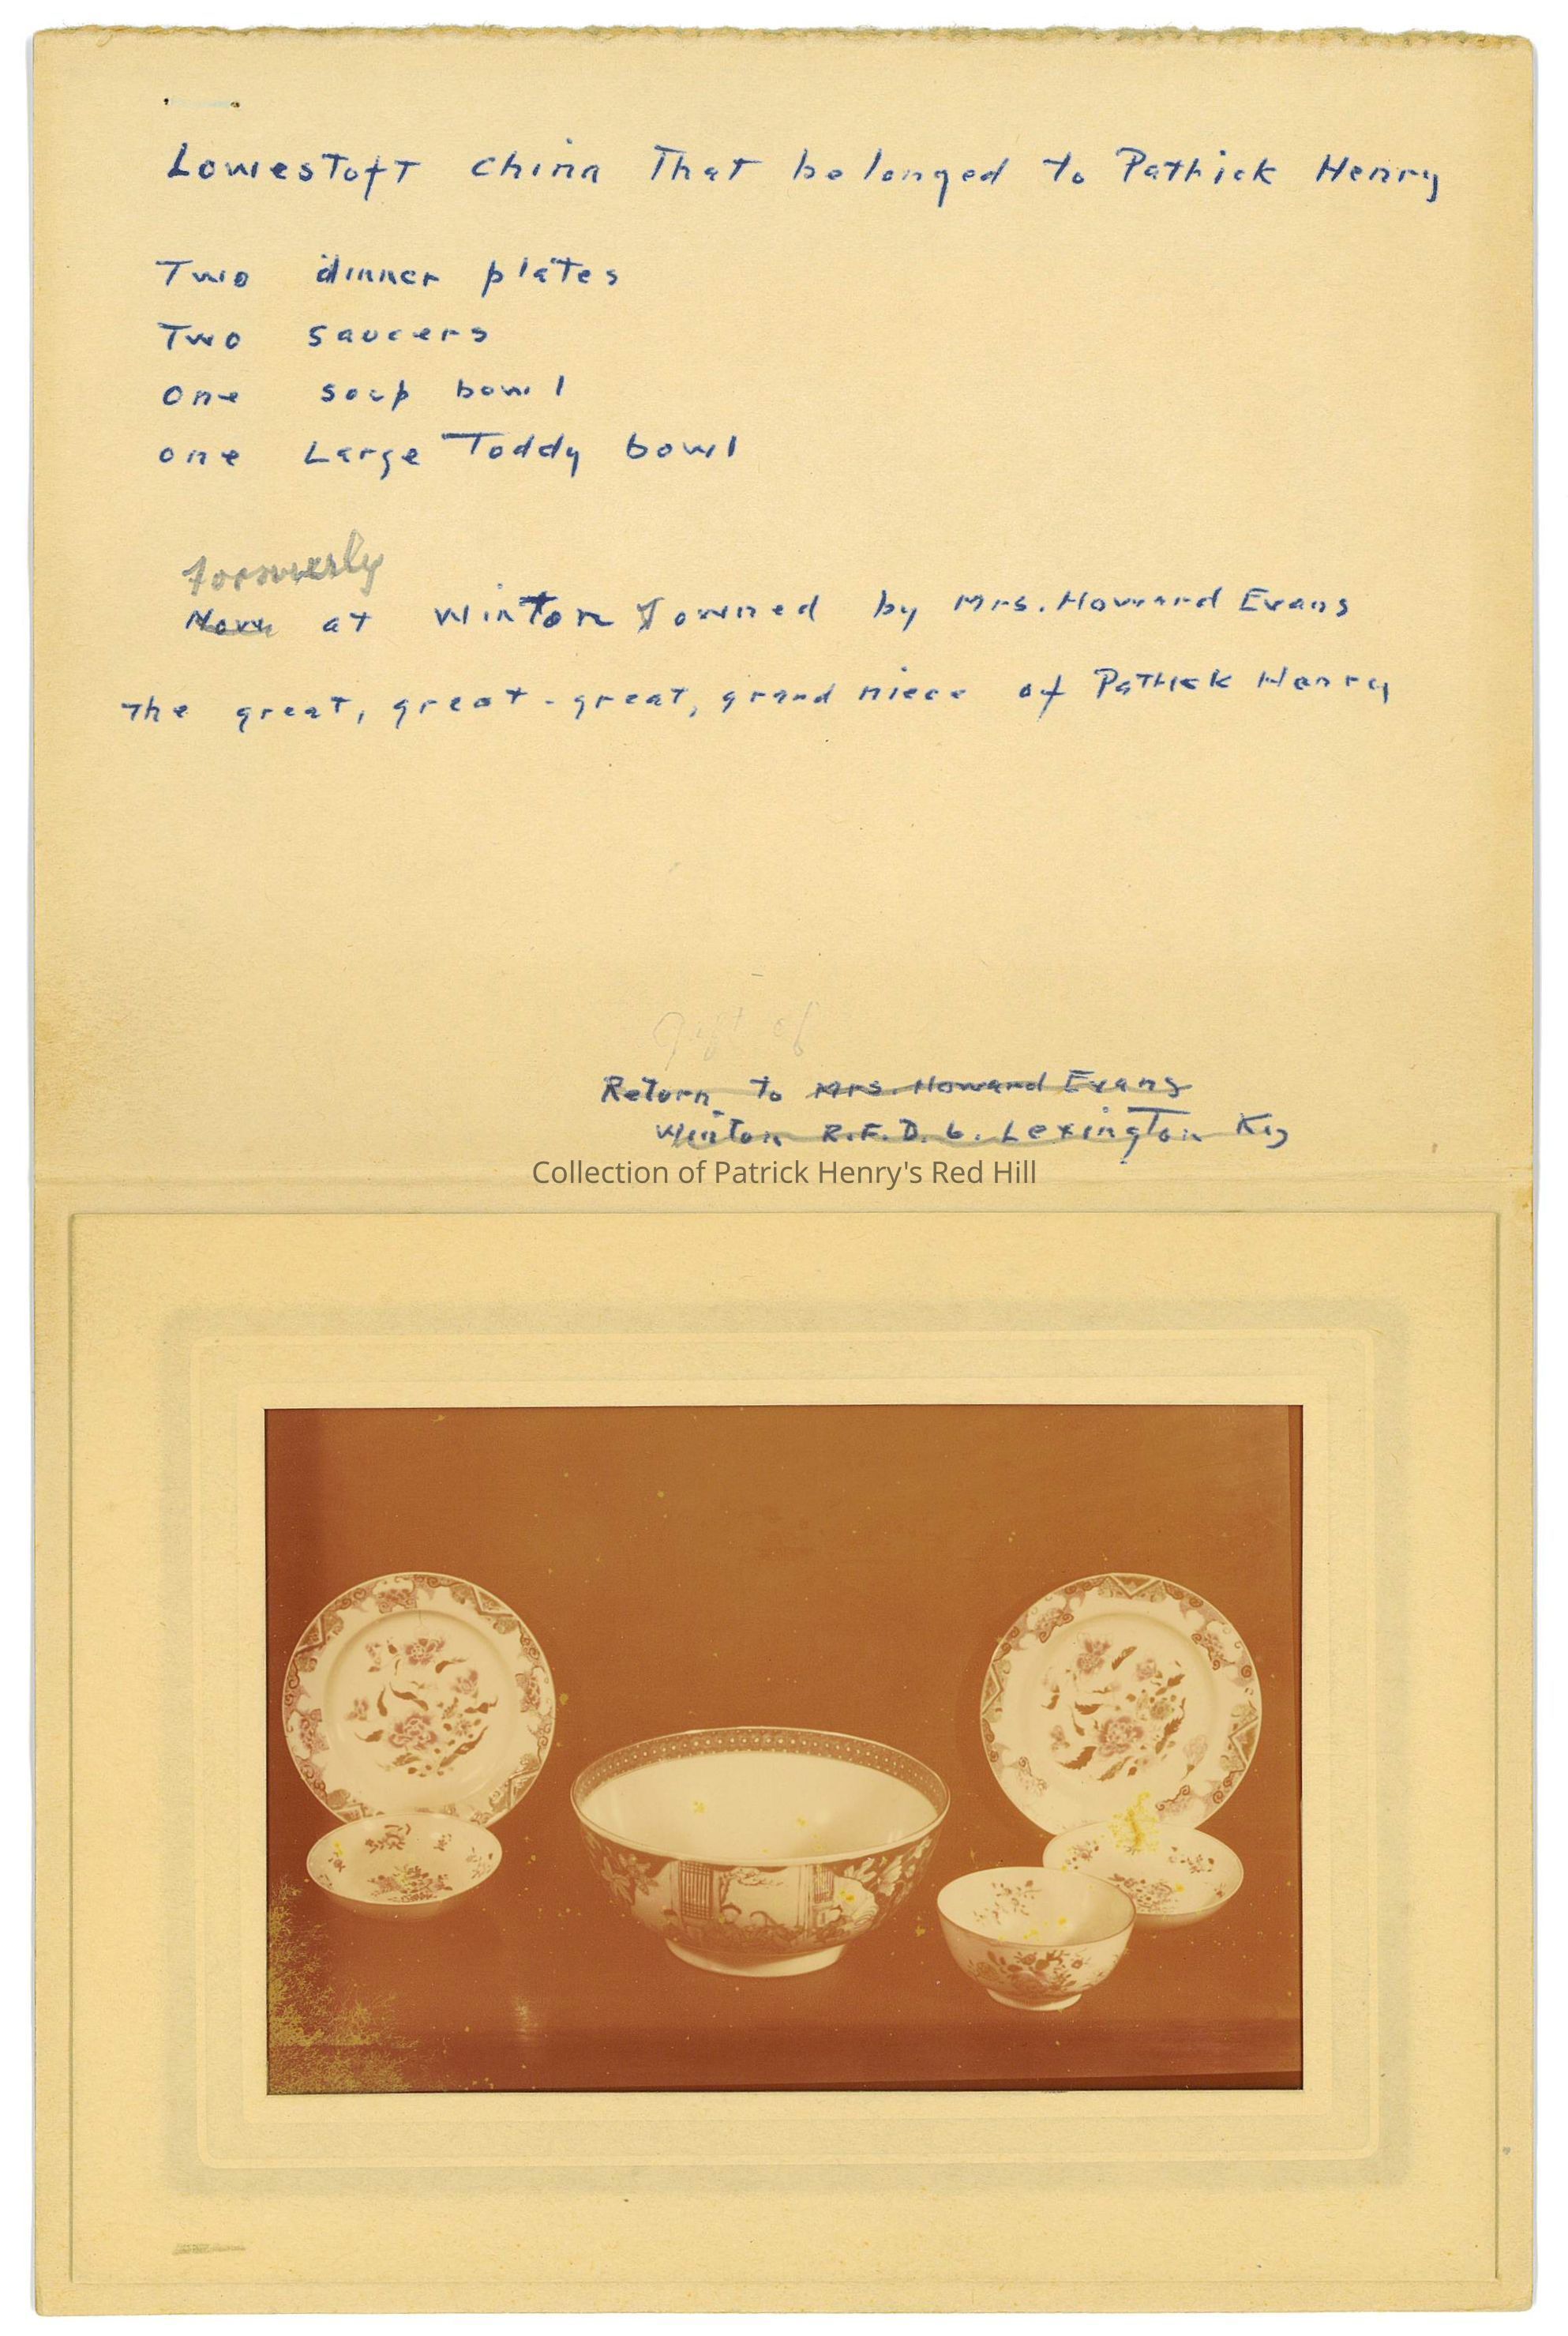 Lowestoft china That belonged to Pathick Henry
Two dinner plates
Two saucers
One soup bowl
one Large Toddy bowl
formerly
Now at Winton owned by Mrs. Howard Evans
The great, great-great, grand niece of Pathick Henry
Gift of
Return To Mrs. Howard Evans
Winton R.F.D. 6. Lexington Ky
Collection of Patrick Henry's Red Hill